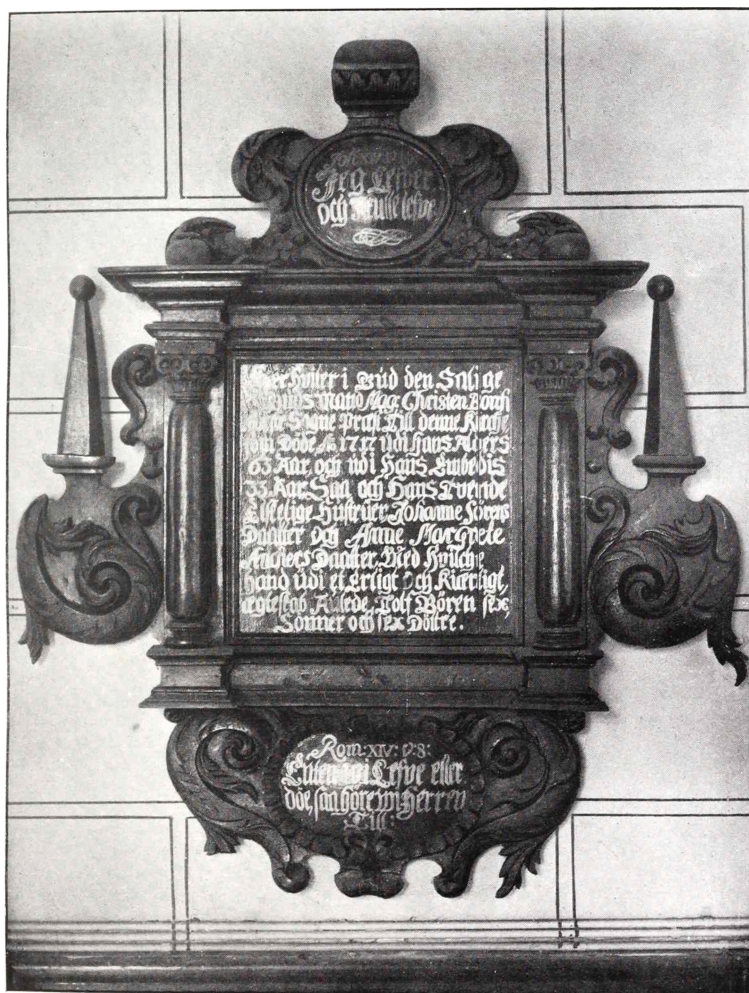 Joh: XIV. v. 19.
Jeg Lefver
och I skulle lefve
Her Hviler i Gud den Salige
Mand Mag: Christen Borch
Sogne Præst Till denne Kirche
som Döde Ao 1717 udi hans Alders
63 Aar, och udi Hans Embedis
33. Aar. Sampt och Hans Tvende
Elskelige Hustruer, Johanne Sörens
Daatter och Anne Margrete
Anchers Daatter, Med Hvilche
hand udi et Erligt Och Kierligt,
egteskab Aflede, Tolf Bören sex,
Sönner och sex Döttre.
Rom: XIV: v: 8:
Enten wi Lefve eller
döe, saa höre wi Herren
Till.